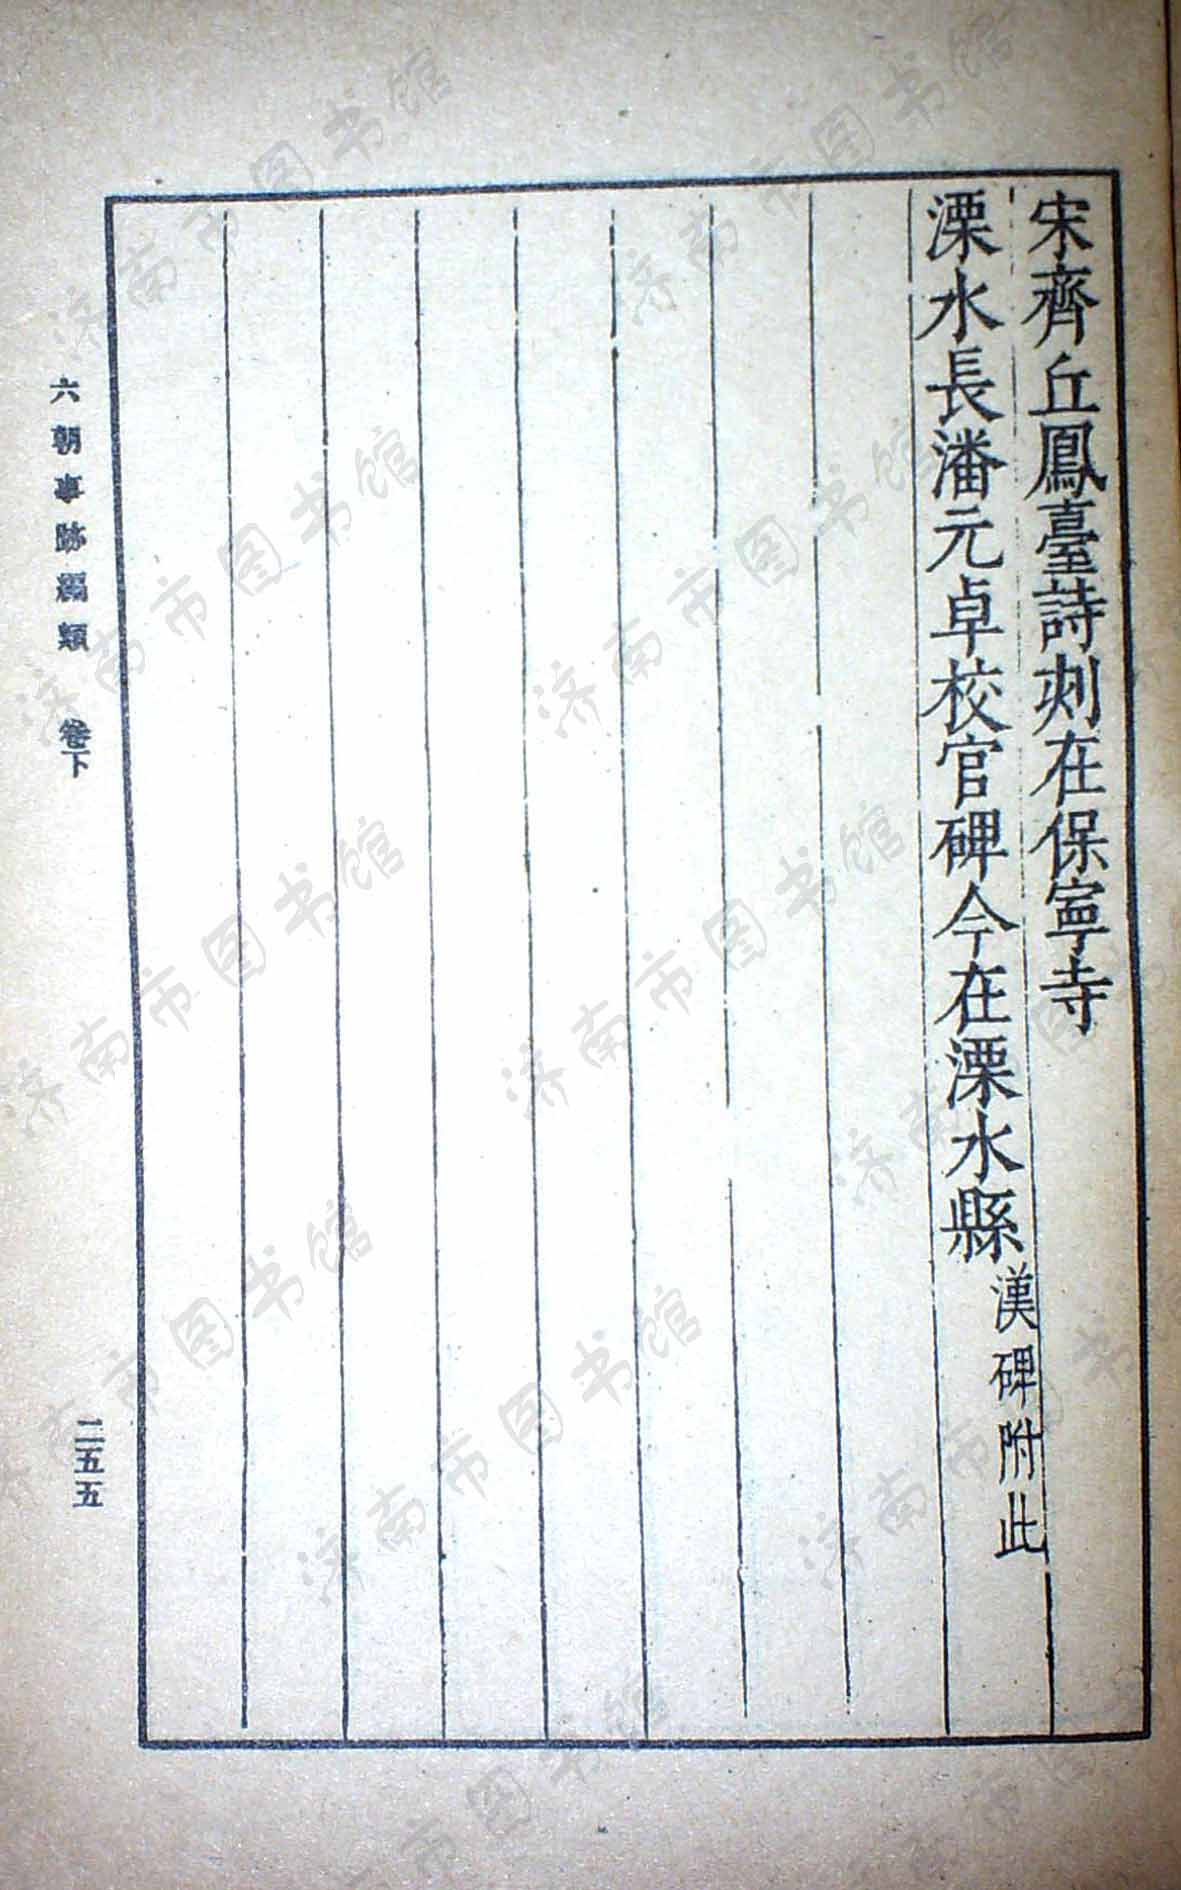 宋齊丘鳳臺詩刻在保寧寺
溧水長潘元卓校官碑今在溧水縣漢碑附此
六朝事跡編類 卷下
二五五
济南市图书馆